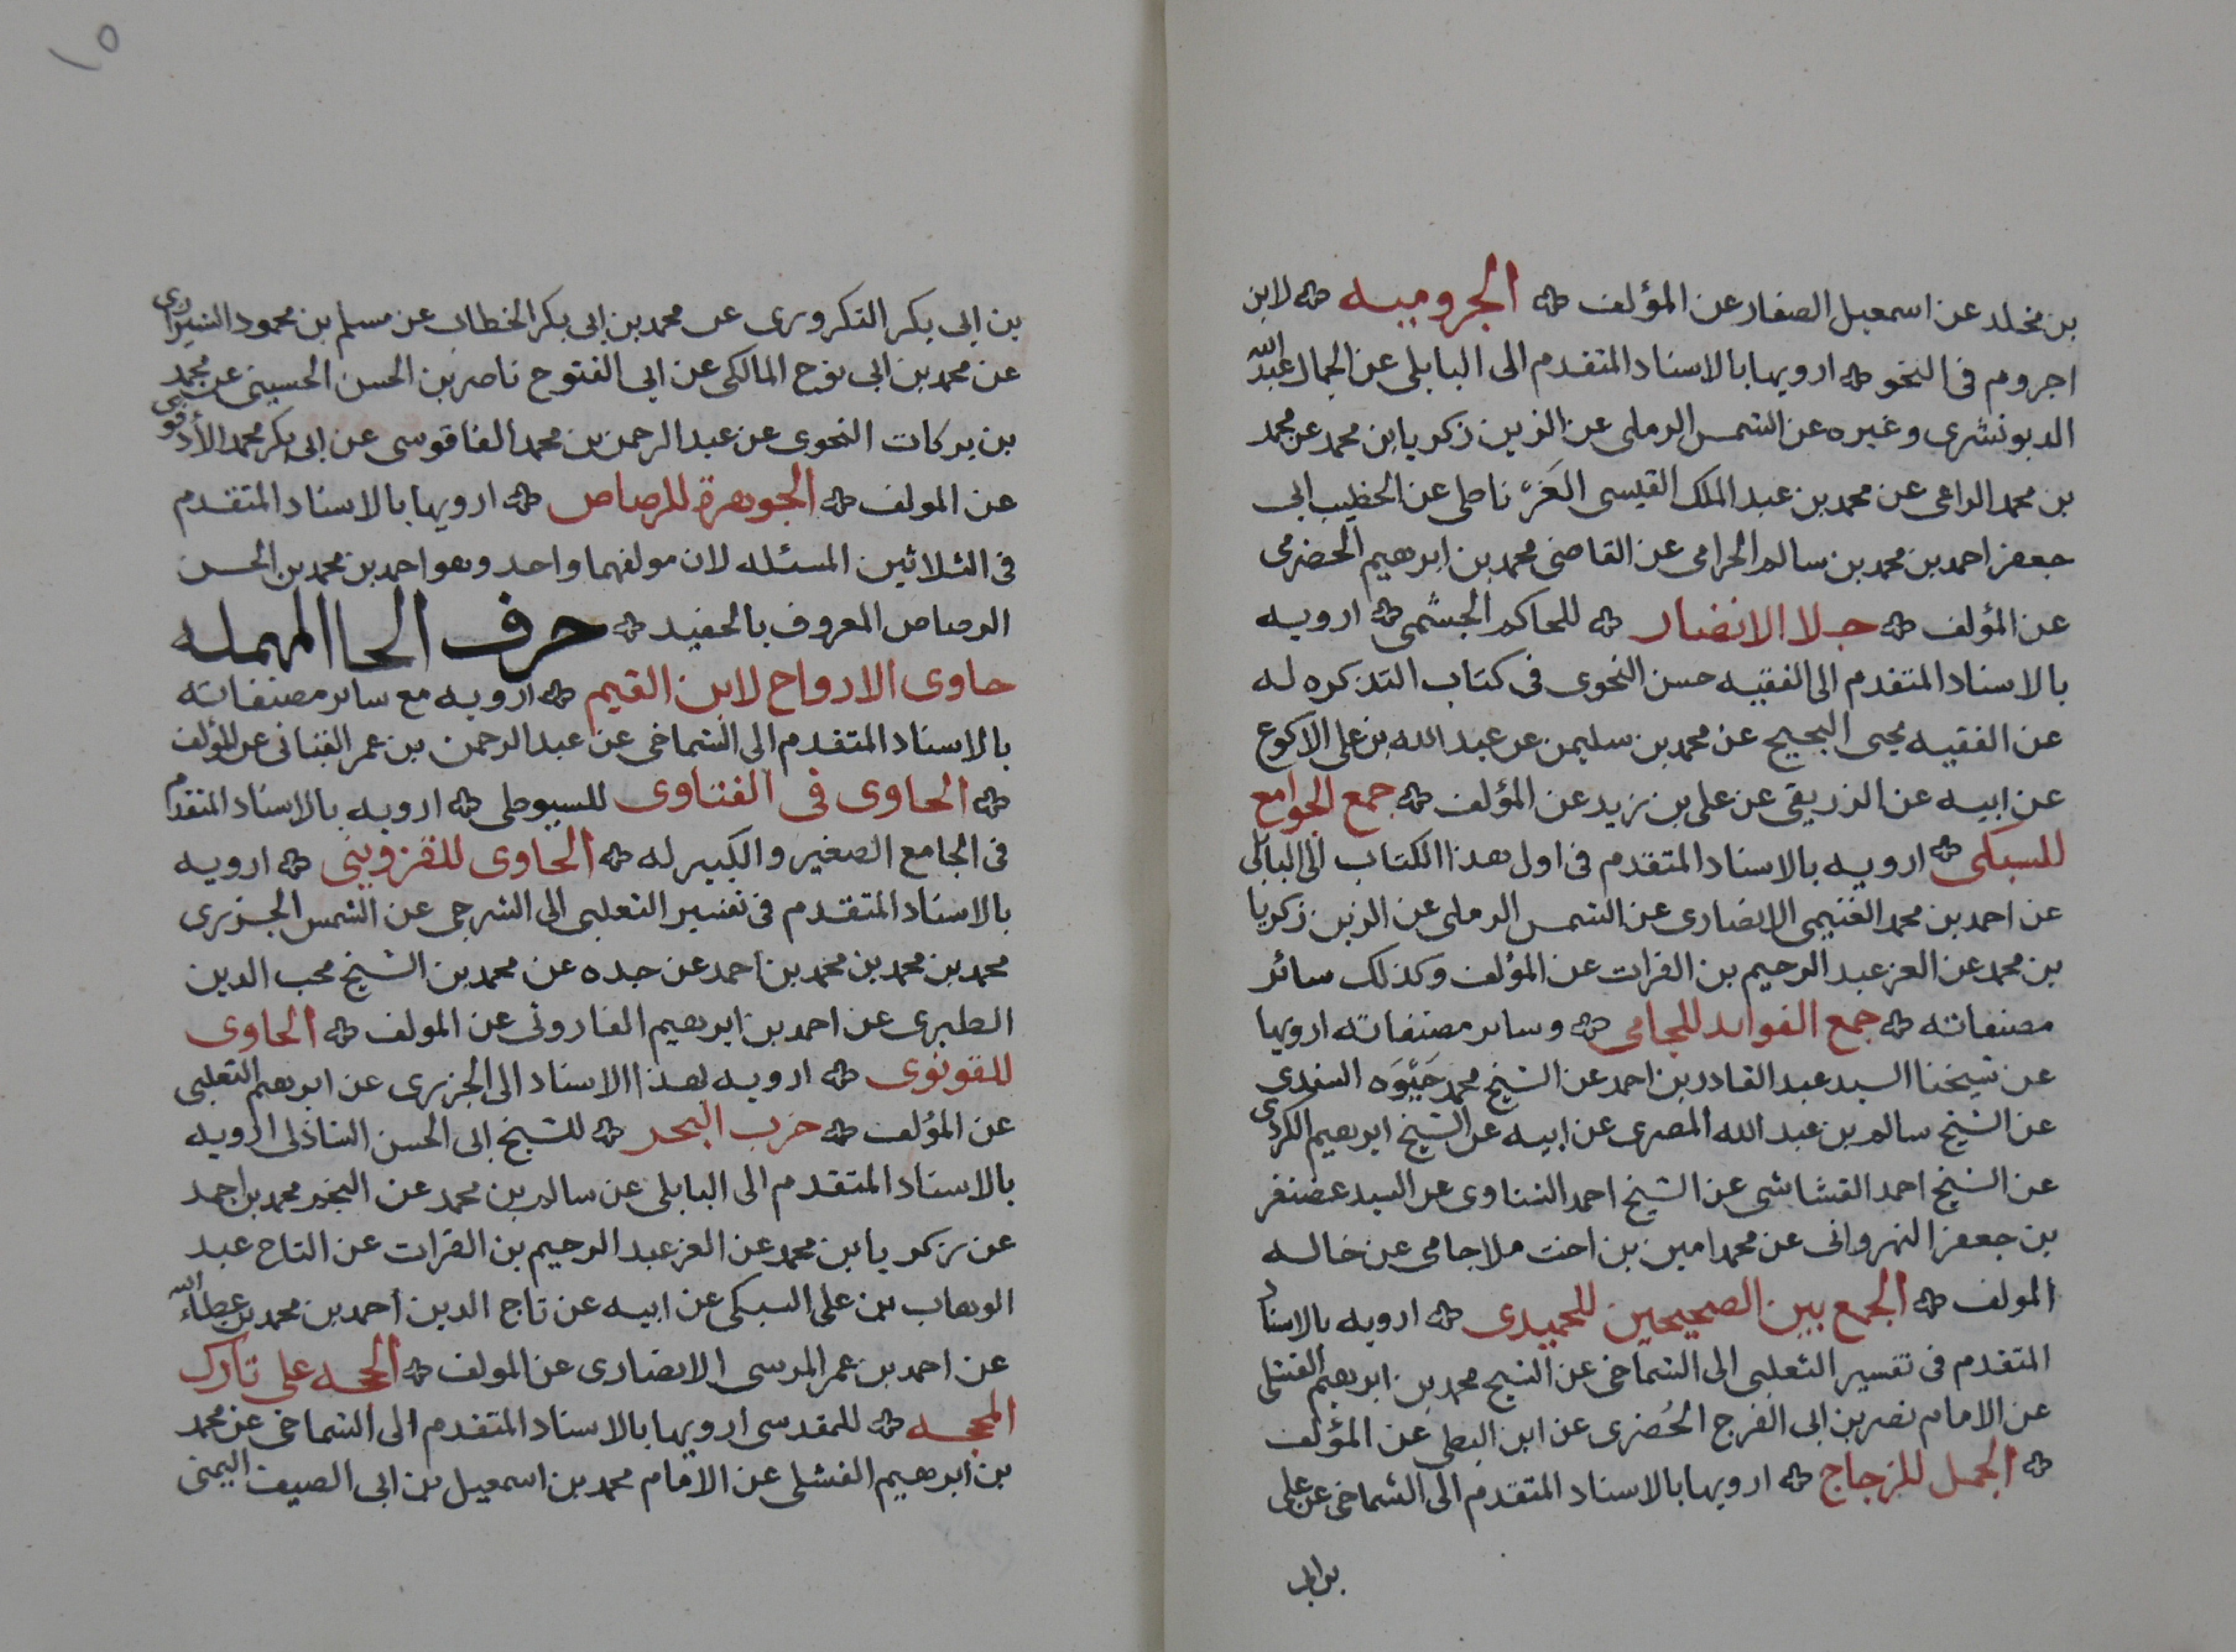 بن مخلد عن اسمعيل الصفار عن المؤلف الجروميه لابن
اجروم فى النحو ارويها بالاسناد المتقدم الى البابلى عن الجمال عبد الله
الدبوشرى وغيره عن الشمس الرملى عن الزين زكريا بن محمد عن محمد
بن محمد الراعى عن محمد بن عبد الملك القيسى الغَرناطى عن الخطيب ابى
جعفر احمد بن محمد بن سالم الحرامى عن القاضى محمد بن ابرهيم الحضرمى
عن المؤلف جلا الابصار للحاكم الجشمى ارويه
بالاسناد المتقدم الى الفقيه حسن النحوى فى كتاب التذكره له
عن الفقيه يحيى البحيح عن محمد بن سليمن عن عبد الله بن على الاكوع
عن ابيه عن الزريقى عن على بن زيد عن المؤلف جمع الجوامع
للسبكى ارويه بالاسناد المتقدم فى اول هذا الكتاب الى البابلى
عن احمد بن محمد الغنيمى الانصارى عن الشمس الرملى عن الزين زكريا
بن محمد عن العز عبد الرحيم بن الفرات عن المؤلف وكذلك سائر
مصنفاته جمع الفوايد للجامى وساير مصنفاته ارويها
عن شيخنا السيد عبد القادر بن احمد عن الشيخ محمد حَيْوَه السندى
عن الشيخ سالم بن عبد الله المصرى عن ابيه عن الشيخ ابرهيم الكردى
عن الشيخ احمد القشاشى عن الشيخ احمد الشناوى عن السيد غضنفر
بن جعفر النهروانى عن محمد امين بن اخت ملا جامى عن خاله
المولف الجمع بين الصحيحين للحميدى ارويه بالاسناد
المتقدم فى تفسير الثعلبى الى الشماخى عن الشيخ محمد بن ابرهيم الفشلى
عن الامام نصر بن ابى الفرج الحُضرى عن ابن البطى عن المؤلف
الجمل للزجاج ارويها بالاسناد المتقدم الى الشماخى عن على
بن ابى
١٥
بن ابى بكر التكرورى عن محمد بن ابى بكر الخطاب عن مسلم بن محمود الشيزرى
عن محمد بن ابى نوح المالكى عن ابى الفتوح ناصر بن الحسن الحسينى عن محمد
بن بركات النحوى عن عبد الرحمن بن محمد الفاقوسى عن ابى بكر محمد الأدفوى
عن المولف الجوهرة للرصاص ارويها بالاسناد المتقدم
فى الثلاثين المسئله لان مولفهما واحد وهو احمد بن محمد بن الحسن
الرصاص المعروف بالحفيد حرف الحا المهمله
حاوى الارواح لابن القيم ارويه مع ساير مصنفاته
بالاسناد المتقدم الى الشماخى عن عبد الرحمن بن عمر القبانى عن المؤلف
الحاوى فى الفتاوى للسيوطى ارويه بالاسناد المتقدم
فى الجامع الصغير والكبير له الحاوى للقزوينى ارويه
بالاسناد المتقدم فى تفسير الثعلبى الى الشرجى عن الشمس الجزرى
محمد بن محمد بن محمد بن احمد عن جده عن محمد بن الشيخ محب الدين
الطبرى عن احمد بن ابرهيم الفاروثى عن المولف الحاوى
للقونوى ارويه بهذا الاسناد الى الجزرى عن ابرهيم الثعلبى
عن المؤلف حزب البحر للشيخ ابى الحسن الشاذلى ارويه
بالاسناد المتقدم الى البابلى عن سالم بن محمد عن النجم محمد بن احمد
عن زكريا بن محمد عن العز عبد الرحيم بن الفرات عن التاج عبد
الوهاب بن على السبكى عن ابيه عن تاج الدين احمد بن محمد بن عطاء الله
عن احمد بن عمر المرسى الانصارى عن المولف الحجه على تارك
المحجه للمقدسى ارويها بالاسناد المتقدم الى الشماخى عن محمد
بن ابرهيم الفشلى عن الامام محمد بن اسمعيل بن ابى الصيف اليمنى